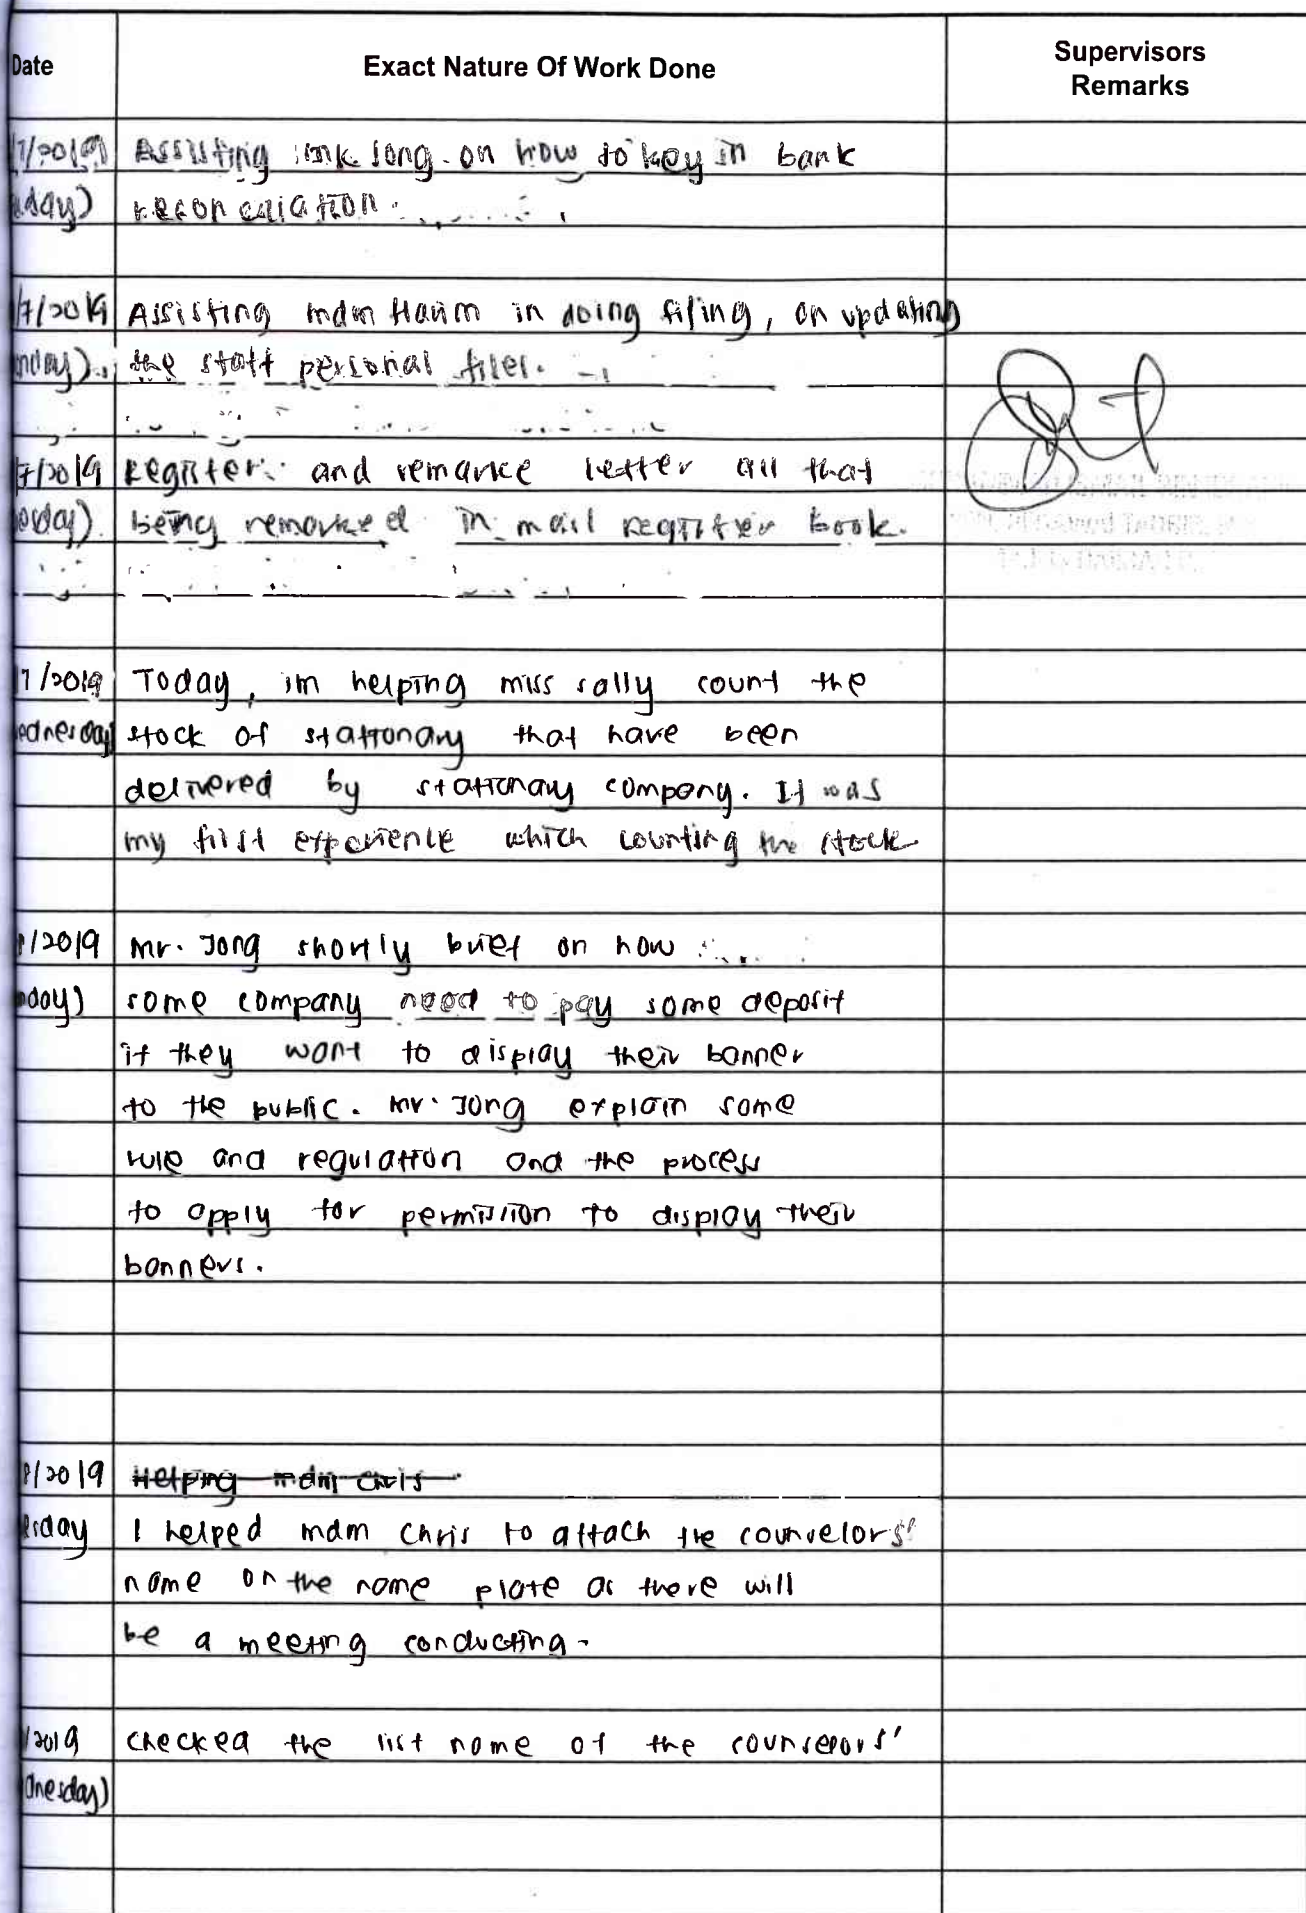 Date Exact Nature Of Work Done Supervisors Remarks
7/2019 Assisting Jong on how to key in bank
day) reconciliation.
/7/2019 Assisting mdm Hanim in doing filing, on updating
nday) the staff personal files.
7/2019 Register and remarke letter all that
day) being remarked in mail register book.
7/2019 Today, im helping miss sally count the
ednesday stock of stationary that have been
delivered by stationary company. It was
my first experience which counting the stock
/2019 Mr. Jong shortly brief on how
day) some company need to pay some deposit
if they want to display their banner
to the public. Mr. Jong explain some
rule and regulation and the process
to apply for permission to display their
banners.
8/2019 Helping mdm Chris
day I helped mdm Chris to attach the counselors'
name on the name plate as there will
be a meeting conducting.
/2019 Checked the list name of the counselors'
dnesday)